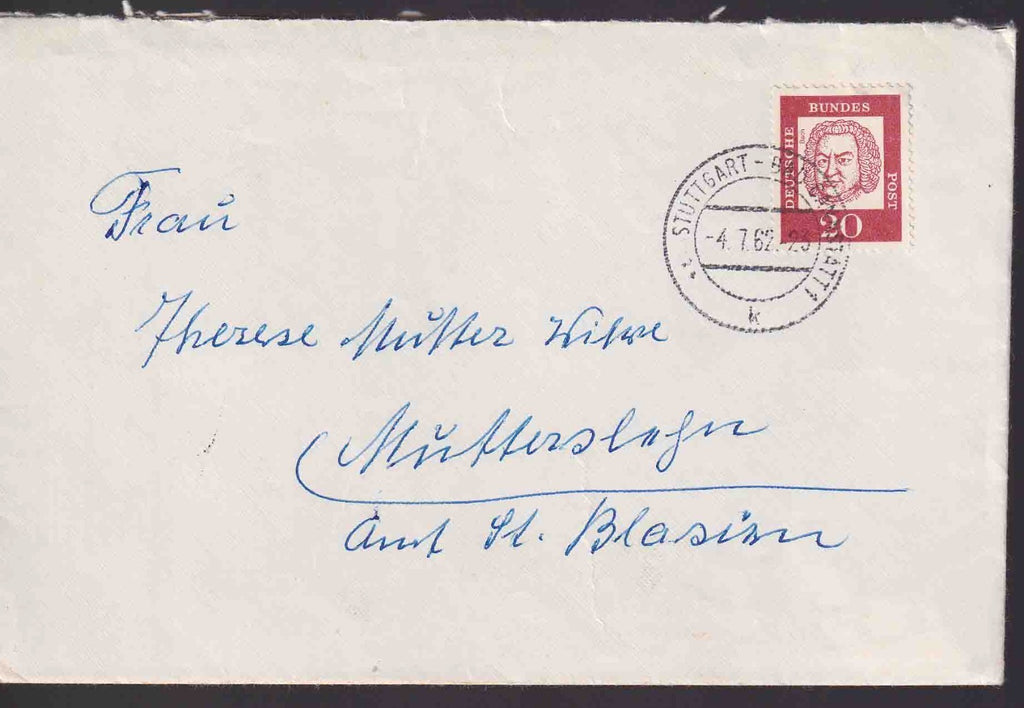 DEUTSCHE BUNDES POST
Bach
20
STUTTGART-BAD CANNSTATT 1
-4.7.62.-23
k
Frau
Therese Mutter Witwe
Mutterslehn
Amt St. Blasien